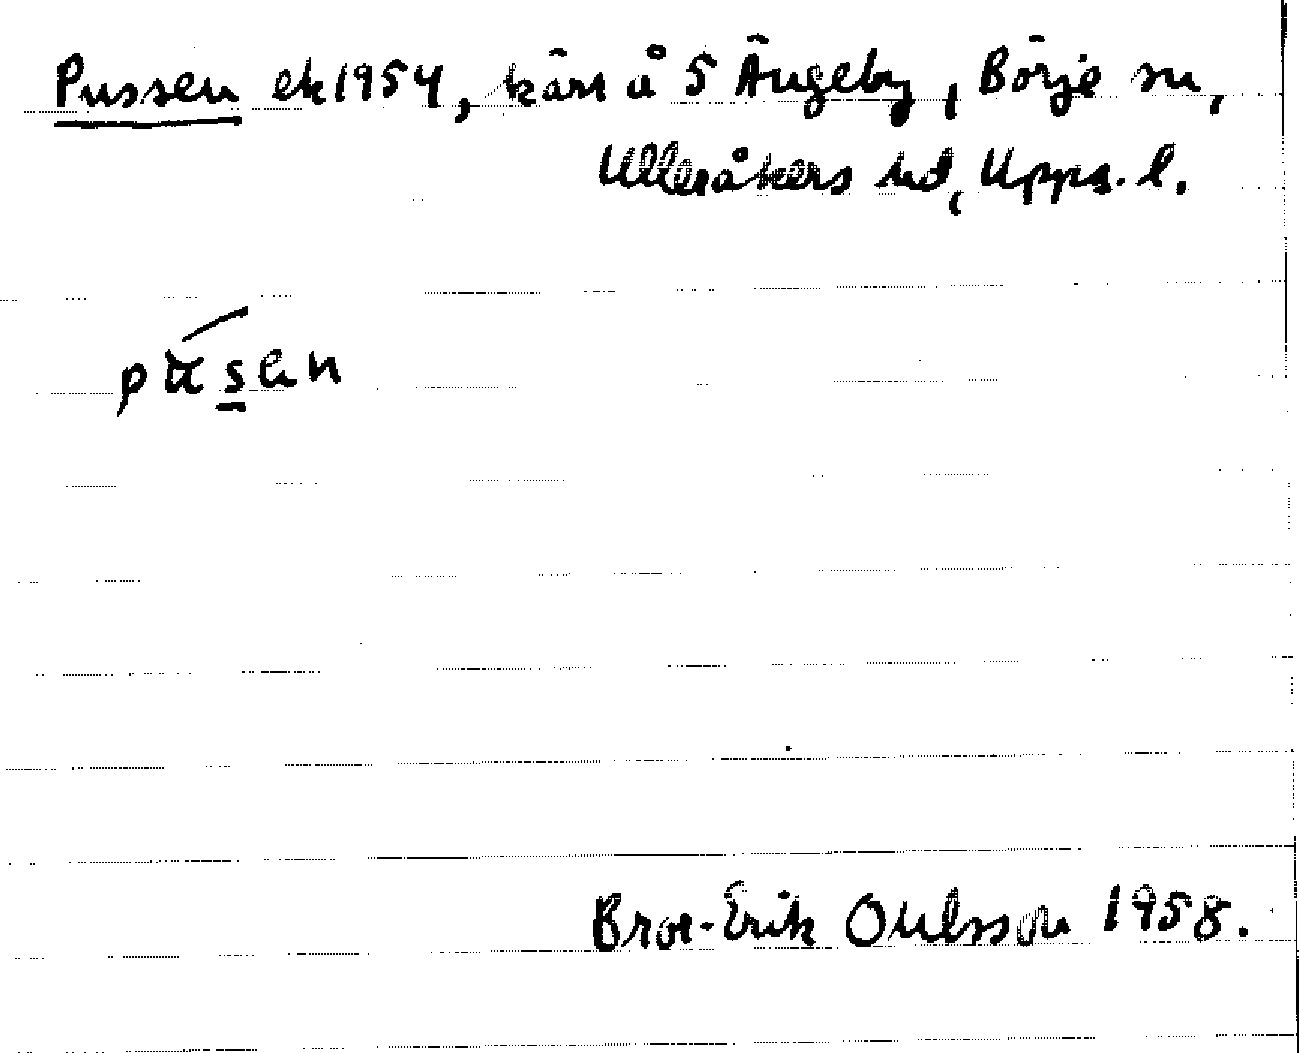 Pussen ek 1954, kärr å S Ängeby, Börje sn,
Ulleråkers hd, Upps. l.
Bror-Erik Ohlsson 1958.